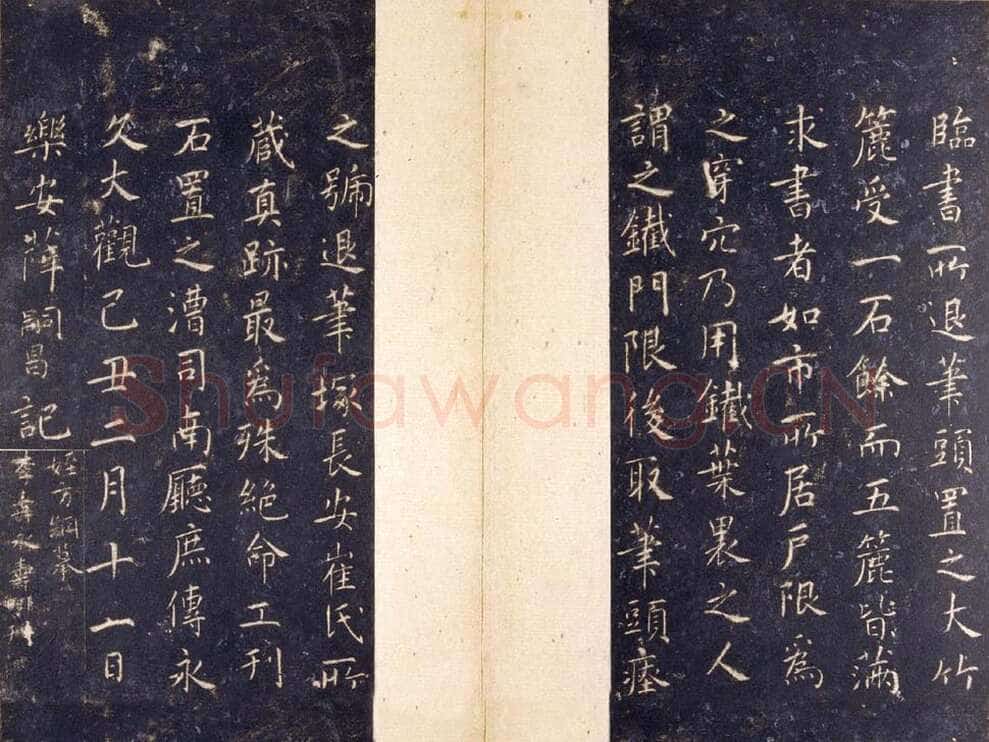 臨書所退筆頭置之大竹
簏受一石餘而五簏皆滿
求書者如市所居戶限爲
之穿穴乃用鐵葉裹之人
謂之鐵門限後取筆頭瘞
之號退筆塚長安崔氏所
蔵真跡最爲殊絕命工刊
石置之漕司南廳庶傳永
久大觀己丑二月十一日
樂安薛嗣昌記
姪方綱摹
李壽永壽明刊
Shufawang.CN